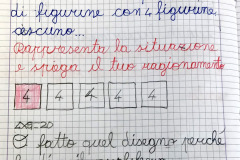 di figurine con 4 figurine
ciascuno...
Rappresenta la situazione
e spiega il tuo ragionamento
4 4 4 4 4
È fatto quel disegno perché